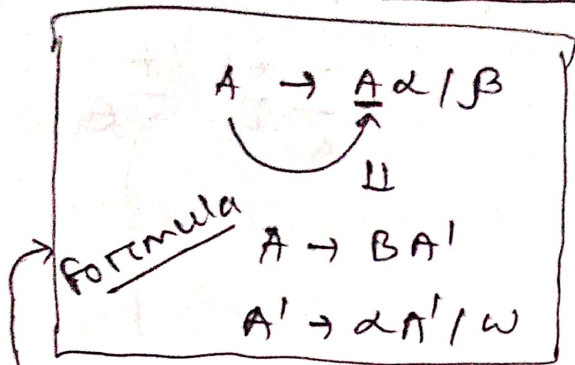 A → A α / β
⇓
Formula
A → B A'
A' → α A' / ω